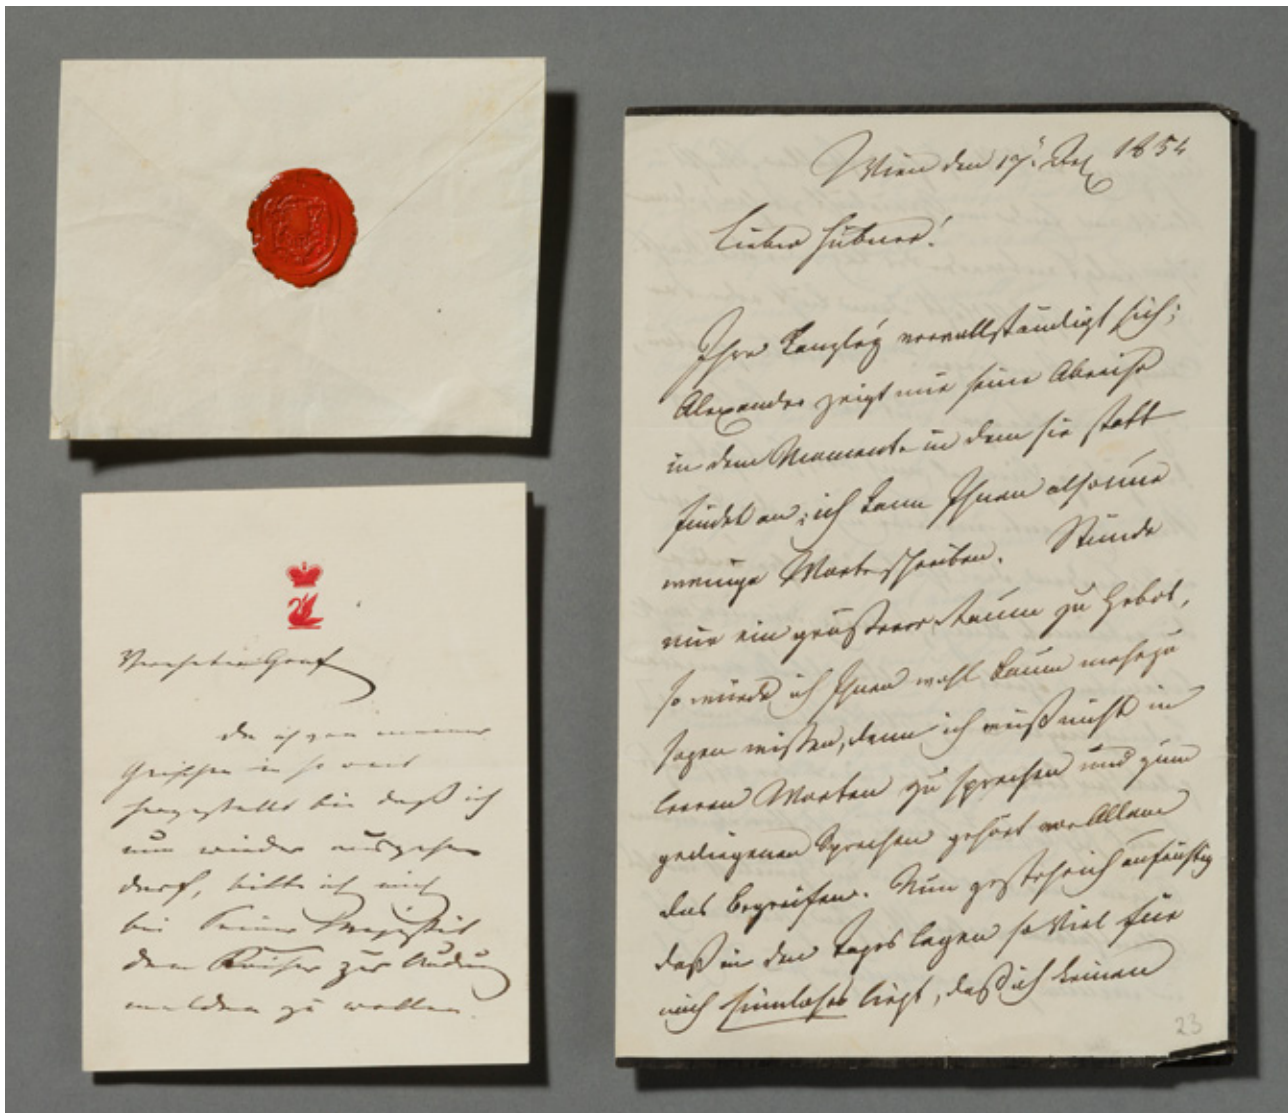 Verehrter Graf
Da ich von meiner
Grippe in so weit
hergestellt bin daß ich
nun wieder ausgehen
darf, bitte ich mich
bei Seiner Majestät
dem Kaiser zur Audienz
melden zu wollen.
Wien den 17. Dez 1854
Lieber Hübner!
Ihre Kanzley vervollständigt sich;
Alexander zeigt mir seine Abreise
in dem Momente in dem sie statt
findet an; ich kann Ihnen also nur
wenige Worte schreiben. Stünde
mir ein größerer Raum zu Gebot,
so würde ich Ihnen wohl kaum mehr zu
sagen wissen, denn ich weiß nicht in
leeren Worten zu sprechen und zum
gediegenen Sprechen gehört vor Allem
das Begreifen. Nun gestehe ich aufrichtig
daß in den Tages Lagen so Viel für
mich Sinnloses liegt, daß ich keinen
23